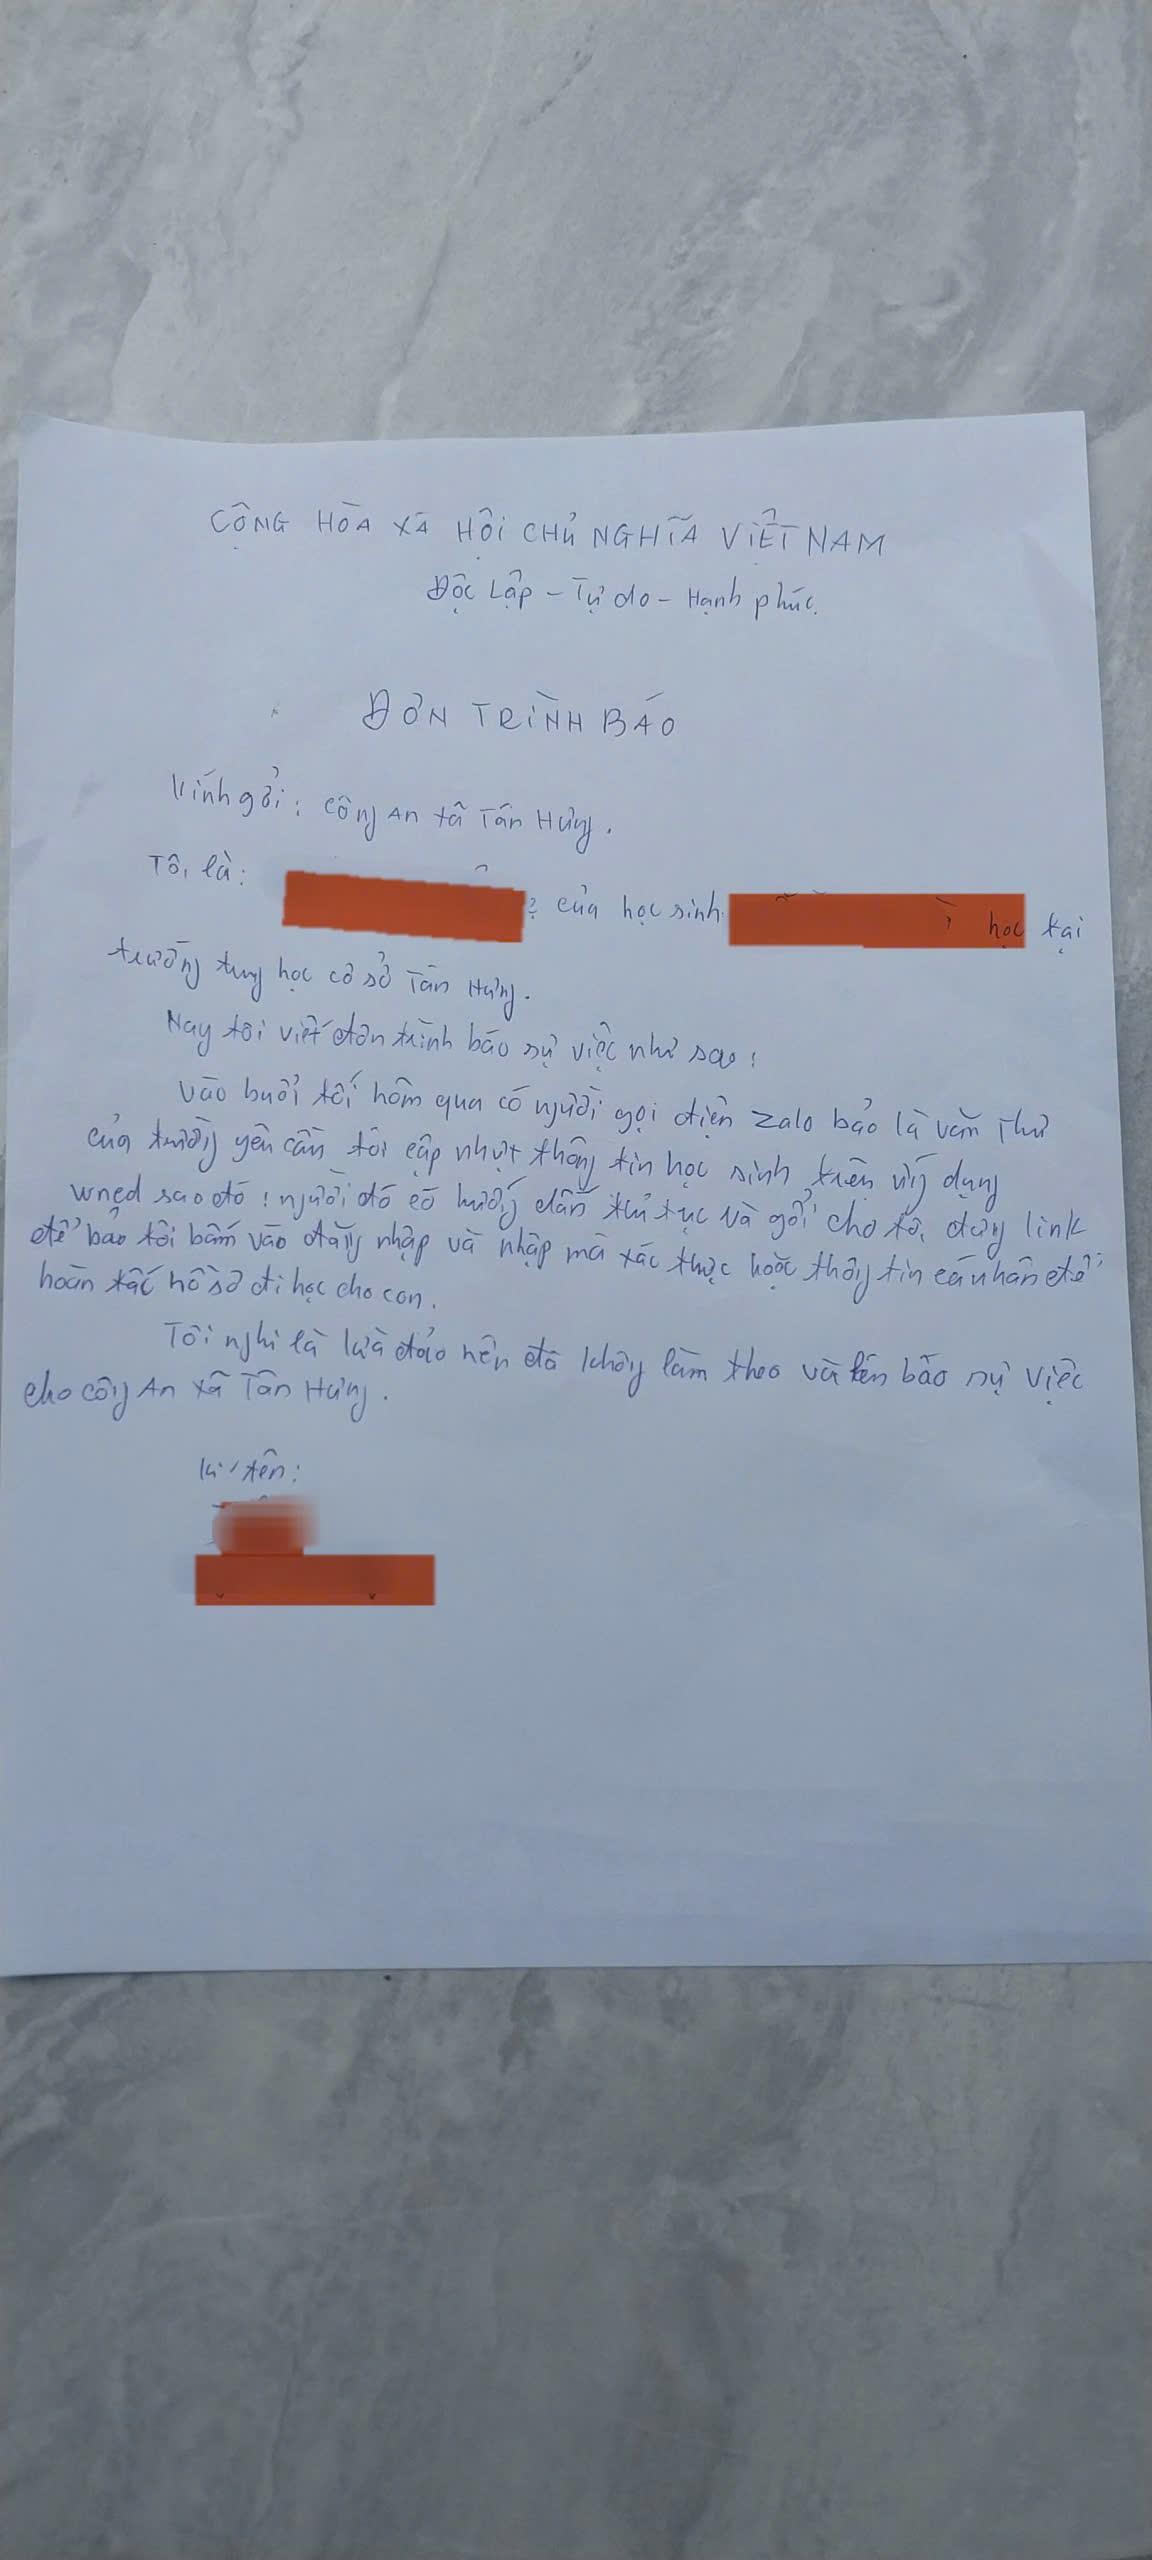 CỘNG HÒA XÃ HỘI CHỦ NGHĨA VIỆT NAM
Độc Lập - Tự do - Hạnh phúc.
ĐƠN TRÌNH BÁO
Kính gởi: Công An xã Tân Hưng.
Tôi là: của học sinh học tại
trường trung học cơ sở Tân Hưng.
Nay tôi viết đơn trình báo sự việc như sau:
Vào buổi tối hôm qua có người gọi điện zalo bảo là văn Thư
của trường yêu cầu tôi cập nhựt thông tin học sinh trên ứng dụng
wned sao đó! người đó có hướng dẫn thủ tục và gởi cho tôi đừng link
để bảo tôi bấm vào đăng nhập và nhập mã xác thực hoặc thông tin cá nhân để
hoàn tất hồ sơ đi học cho con.
Tôi nghi là lừa đảo nên đã không làm theo và lên báo sự việc
cho công An xã Tân Hưng.
Kí tên: